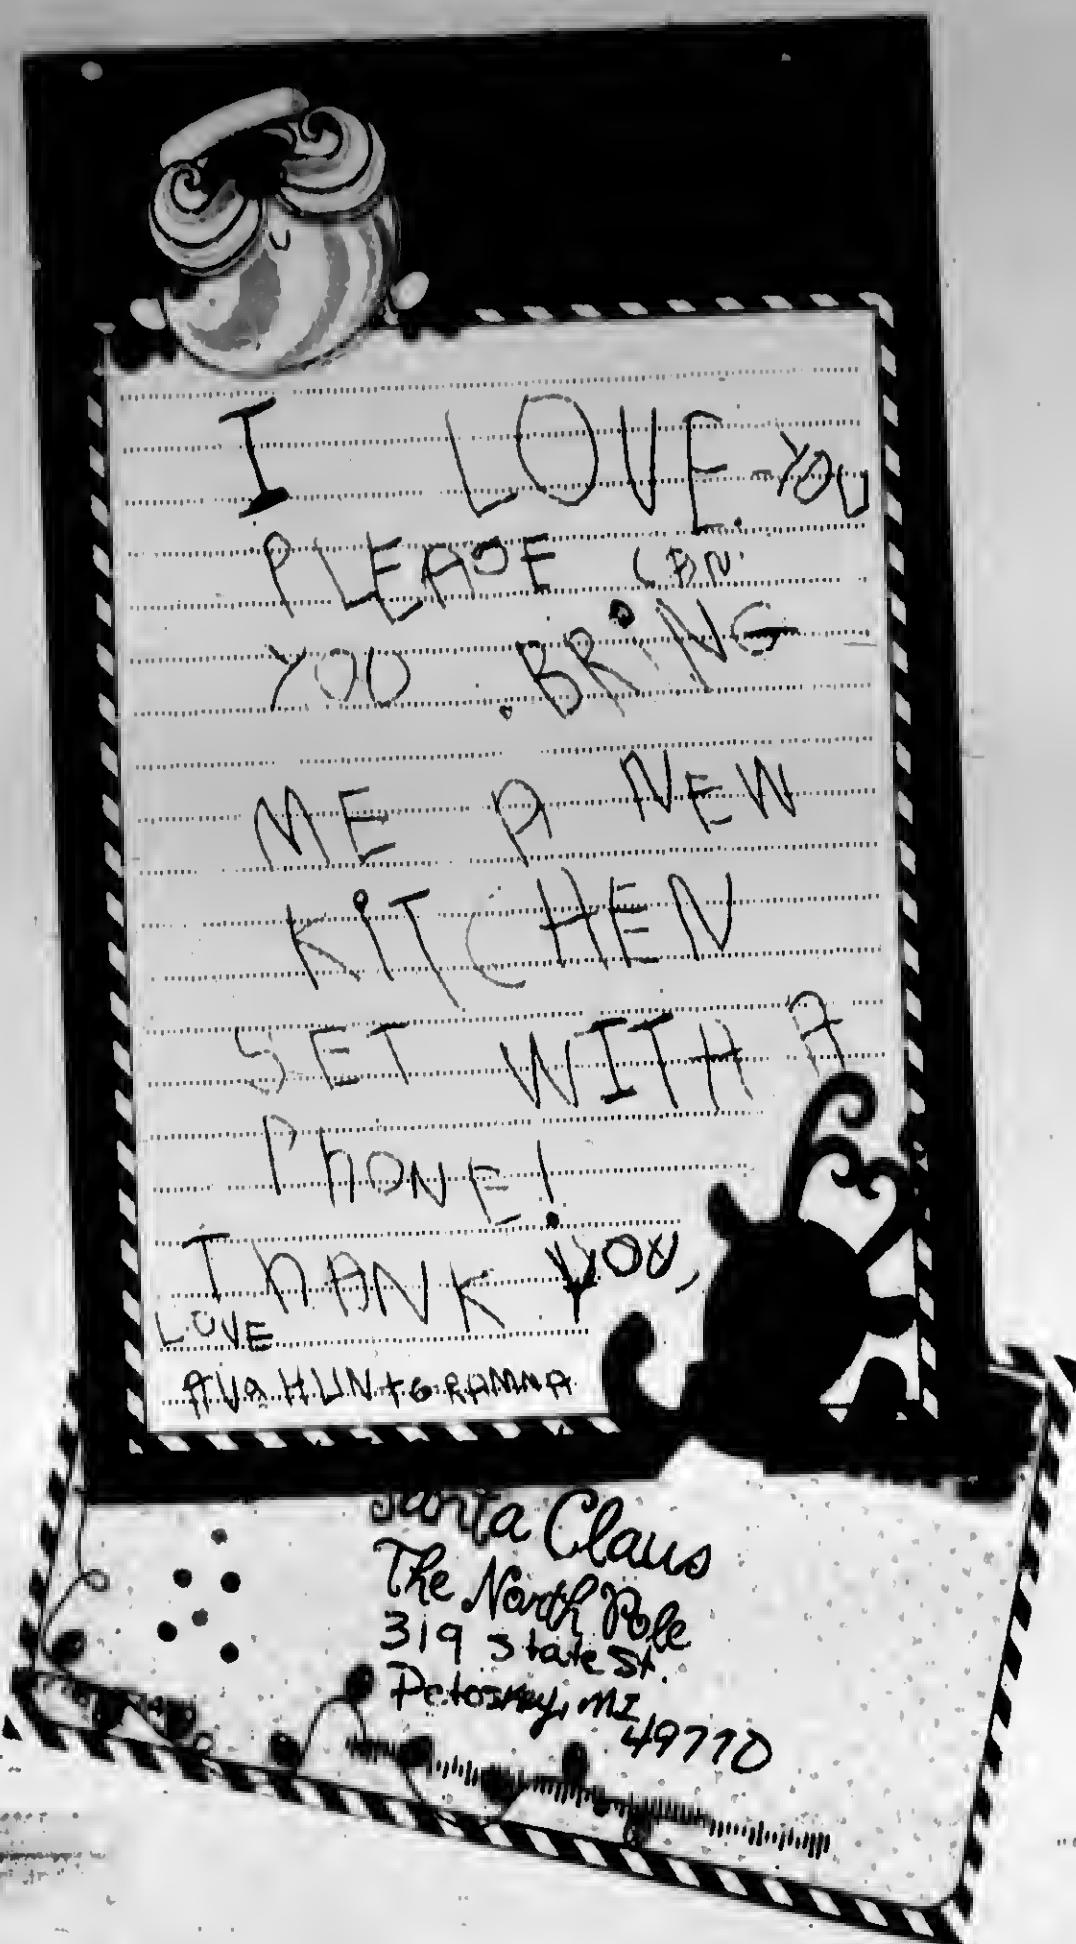 I LOVE YOU
PLEASE CAN
YOU BRiNG
ME A NEW
KiTCHEN
SET WITH A
PhONE!
ThANK YOU,
LOVE
AVA HUNt & RAMNA
Santa Claus
The North Pole
319 State St.
Petoskey, MI
49770